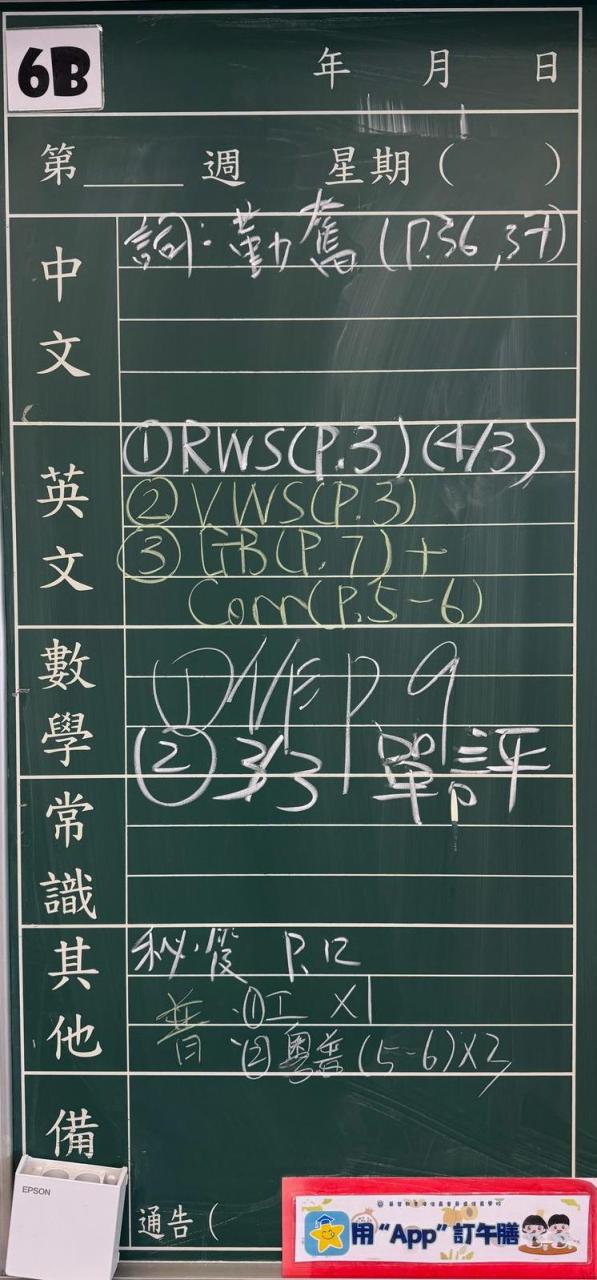 6B
年 月 日
第 週 星期( )
中文
詞:勤奮(P.36,37)
英文
①RWS(P.3)(4/3)
②VWS(P.3)
③GB(P.7)+
Com(P.5-6)
數學
① P9
②3/3 單評
常識
其他
P.12
普 ①工 X1
②粵普(5-6)X2
備
通告(
EPSON
用“App”訂午膳